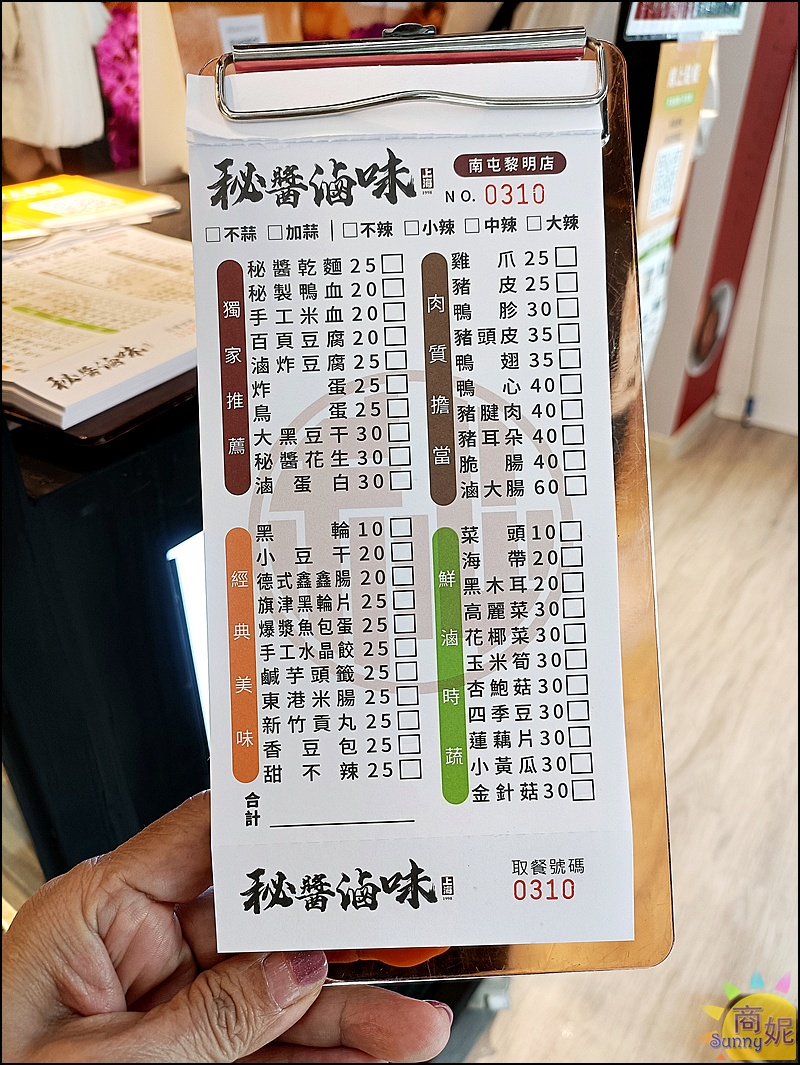 秘醬滷味 上海 1998
南屯黎明店
NO. 0310
□不蒜 □加蒜 | □不辣 □小辣 □中辣 □大辣
獨家推薦
秘醬乾麵 25□
秘製鴨血 20□
手工米血 20□
百頁豆腐 20□
滷炸豆腐 25□
炸蛋 25□
鳥蛋 25□
大黑豆干 30□
秘醬花生 30□
滷蛋白 30□
肉質擔當
雞爪 25□
豬皮 25□
鴨胗 30□
豬頭皮 35□
鴨翅 35□
鴨心 40□
豬腱肉 40□
豬耳朵 40□
脆腸 40□
滷大腸 60□
經典美味
黑輪 10□
小豆干 20□
德式鑫鑫腸 20□
旗津黑輪片 25□
爆漿魚包蛋 25□
手工水晶餃 25□
鹹芋頭籤 25□
東港米腸 25□
新竹貢丸 25□
香豆包 25□
甜不辣 25□
鮮滷時蔬
菜頭 10□
海帶 20□
黑木耳 20□
高麗菜 30□
花椰菜 30□
玉米筍 30□
杏鮑菇 30□
四季豆 30□
蓮藕片 30□
小黃瓜 30□
金針菇 30□
合計
秘醬滷味 上海 1998
取餐號碼
0310
秘醬滷味
商妮
Sunny